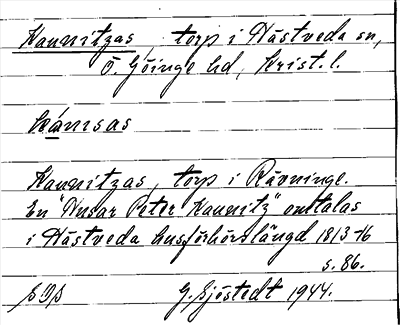 Kaunitzas, torp i Hästveda sn,
Ö. Göinge hd, Krist. l.
kánsas
Kaunitzas, torp i Rävninge.
En "Husar Peter Kaunitz" omtalas
i Hästveda husförhörslängd 1813-16
s. 86.
G. Sjöstedt 1944.